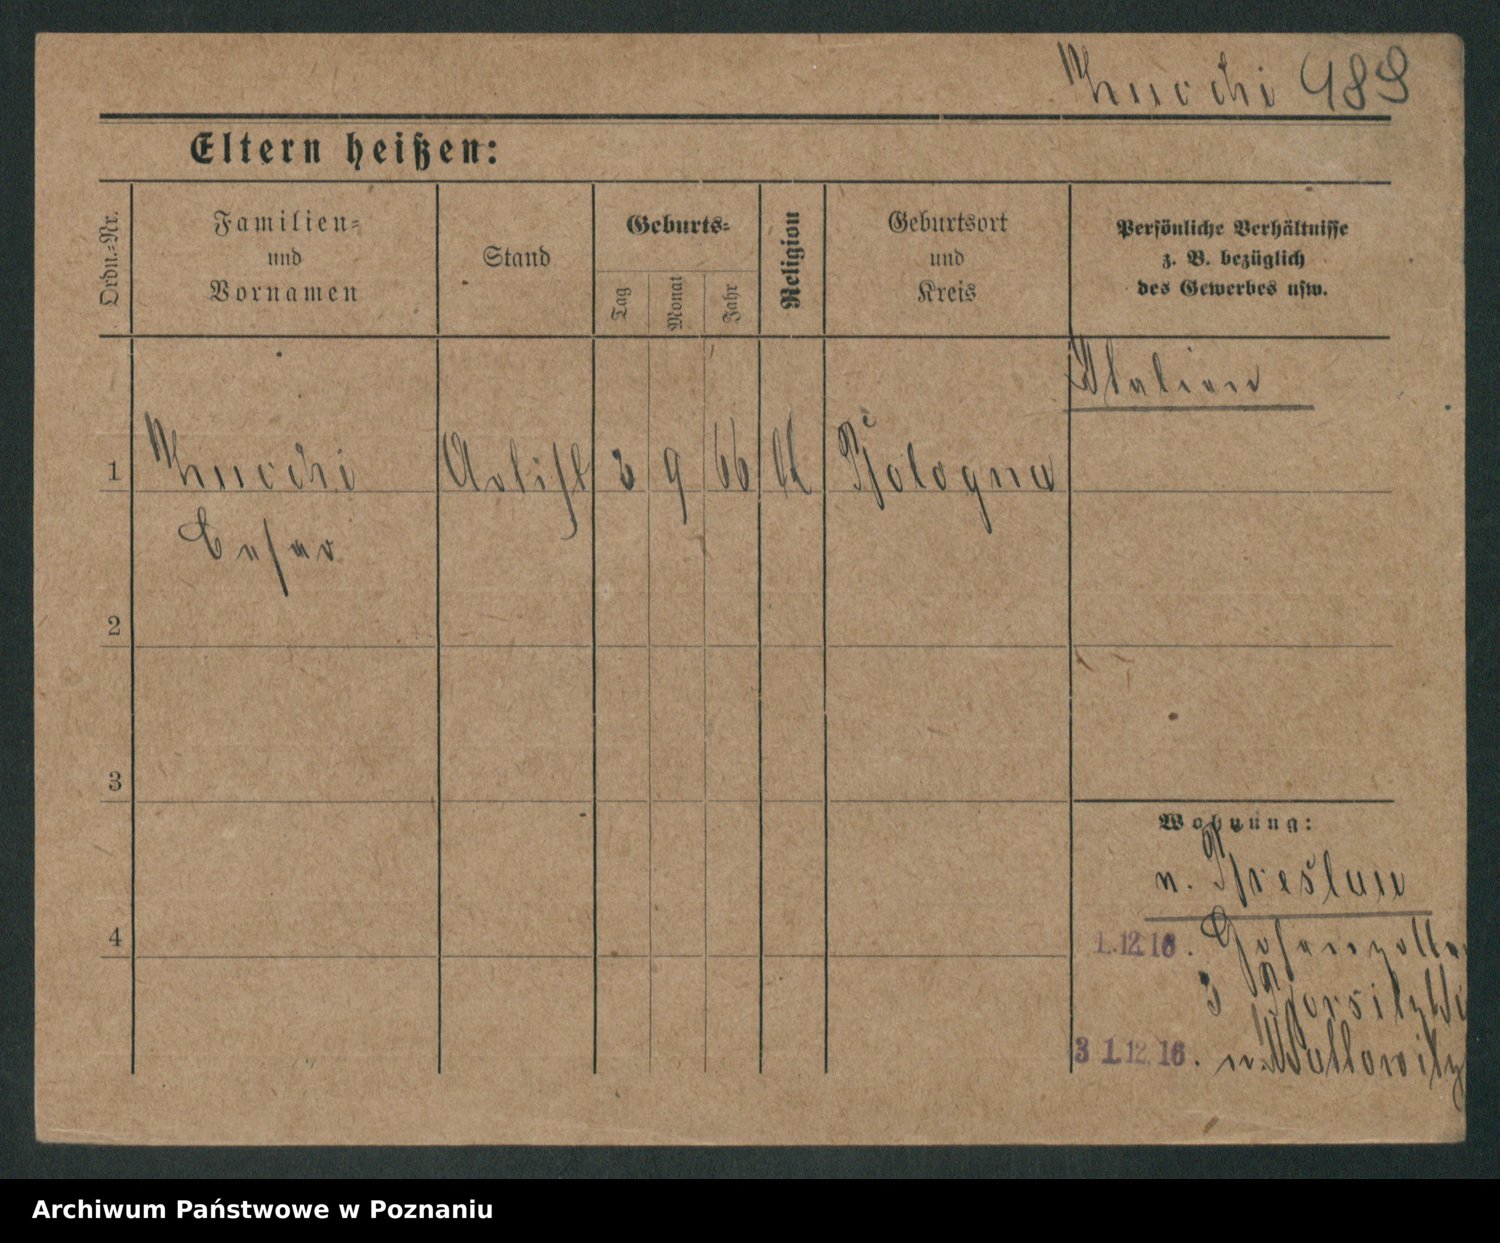 Zucchi 489
Eltern heißen:
Ordn.-Nr.
Familien-
und
Vornamen
Stand
Geburts-
Tag
Monat
Jahr
Religion
Geburtsort
und
Kreis
Persönliche Verhältnisse
z. B. bezüglich
des Gewerbes usw.
Italien
1 Zucchi Artist 3 9 66 k Bologna
Cesar
2
3
Wohnung:
n. Breslau
4
1.12.16.
3
31.12.16. n.
Archiwum Państwowe w Poznaniu